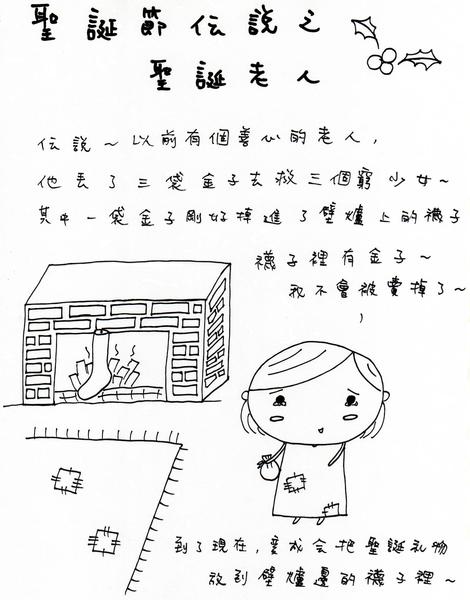 聖誕節伝説之
聖誕老人
伝説～以前有個善心的老人，
他丟了三袋金子去救三個窮少女～
其中一袋金子剛好掉進了壁爐上的襪子
襪子裡有金子～
我不會被賣掉了～
到了現在，變成会把聖誕礼物
放到壁爐邊的襪子裡～